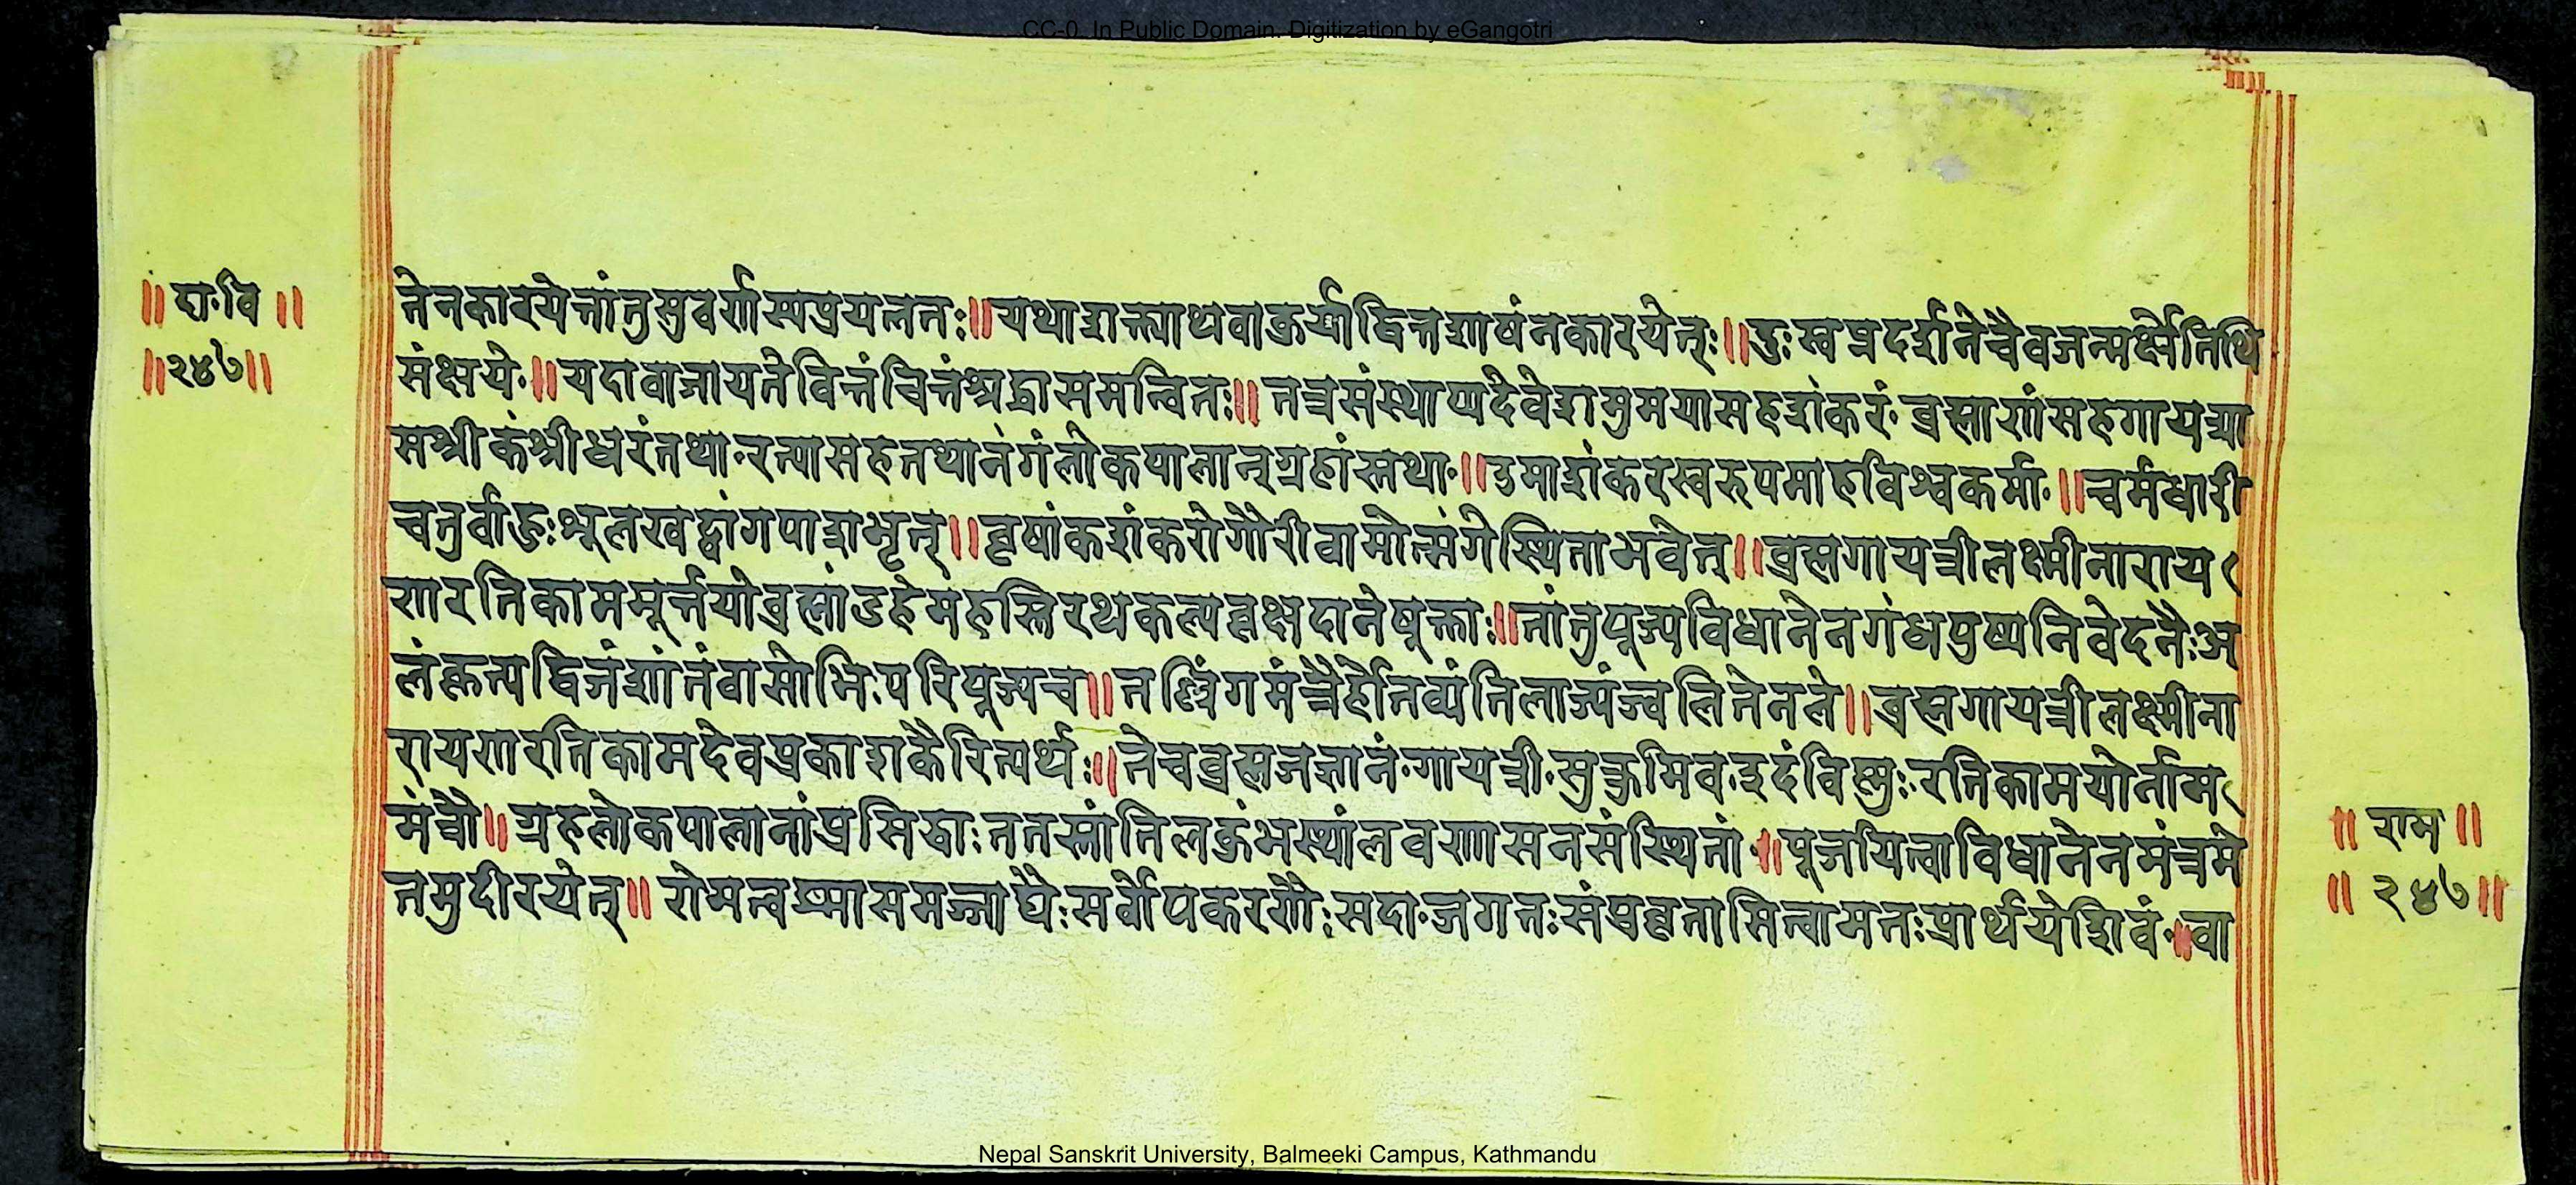 CC-0. In Public Domain. Digitization by eGangotri
॥ दा॰वि ॥
॥२४७॥
तेनकारयेत्तांतुसुवर्णस्यप्रयत्नतः॥यथाशक्त्याथवाकुर्याद्वित्तशाठ्यंनकारयेत्ः॥दुःस्वप्नदर्शनेचैवजन्मर्क्षेतिथि
संक्षये॰॥यदावाजायतेवित्तंचित्तंश्रद्धासमन्वितः॥तत्रसंस्थाप्यदेवेशमुमयासहशंकरं॰ब्रह्माणंसहगायत्र्या
सश्रीकंश्रीधरंतथा॰रत्यासहतथानंगंलोकपालान्ग्रहांस्तथा॰॥उमाशंकरस्वरुपमाहविश्वकर्मा॰॥चर्मधारी
चतुर्वाहुःशूलखट्वांगपाशभृत्॥वृषांकशंकरोगौरीवामोत्संगेस्थिताभवेत्॥ब्रह्मगायत्रीलक्ष्मीनाराय
णरतिकाममूर्त्तयोब्रह्मांडहेमहस्तिरथकल्पवृक्षदानेषूक्ताः॥तांतुपूज्यविधानेनगंधपुष्पनिवेदनैःअ
लंकृत्यद्विजंशांतंवासोभिःपरिपूज्यच॥तल्लिंगमंत्रैर्होतव्यंतिलाज्यंज्वलितेनले॥ब्रह्मगायत्रीलक्ष्मीना
रायणरतिकामदेवप्रकाशकैरित्यर्थः॥तेचब्रह्मजज्ञानं॰गायत्री॰सुक्तमिव॰इदंविष्णुः॰रतिकामयोर्नाम
मंत्रौ॥ग्रहलोकपालानांप्रसिद्धाःततस्तांतिलकुंभस्थांलवणासनसंस्थितां॰॥पूजयित्वाविधानेनमंत्रमे
तमुदीरयेत्॥ सर्वोपकरणैःसदा॰जगतःसंप्रवृत्तासित्वामतःप्रार्थयेशिवं॰॥वा
॥ राम ॥
॥ २४७॥
Nepal Sanskrit University, Balmeeki Campus, Kathmandu